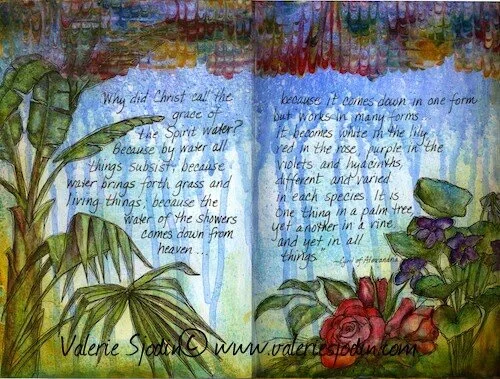 Why did Christ call the
grace of
the Spirit water?
because by water all
things subsist; because
water brings forth grass and
living things; because the
water of the showers
comes down from
heaven...
because it comes down in one form
but works in many forms.
It becomes white in the lily,
red in the rose, purple in the
violets and hyacinths,
different and varied
in each species. It is
one thing in a palm tree,
yet another in a vine
and yet in all
things."
-Cyril of Alexandria
Valerie Sjodin© www.valeriesjodin.com